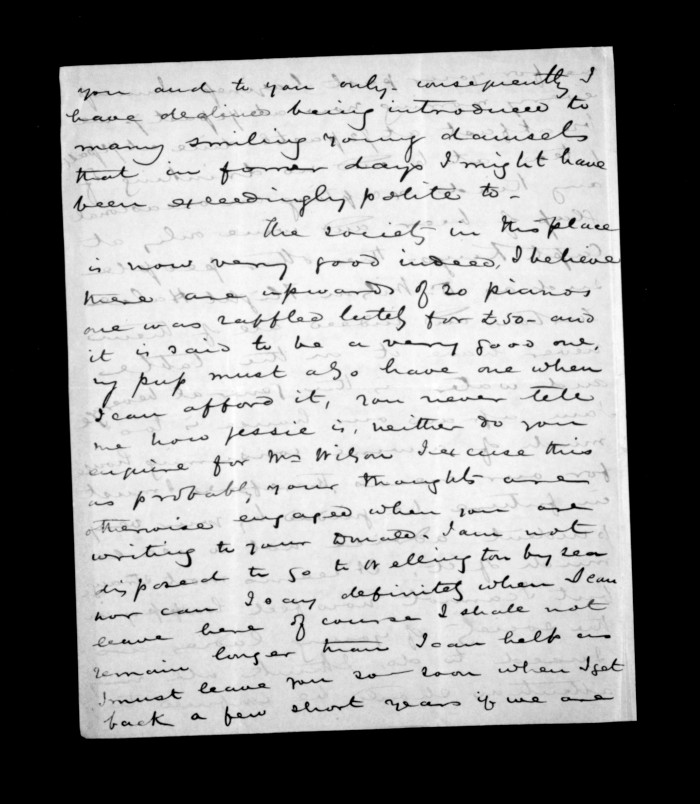 you and to you only. consequently I
have declined being introduced to
many smiling young damsels
that in former days I might have
been exceedingly polite to -
The society in this place
is now very good indeed, I believe
there are upwards of 20 pianos
one was raffled lately for £50 and
it is said to be a very good one,
my pup must also have one when
I can afford it, you never tell
me how Jessie is, neither do you
enquire for Mr Wilson I excuse this
as probably your thoughts are
otherwise engaged when you are
writing to your Donald. I am not
disposed to go to Wellington by sea
nor can I say definitely when I can
leave here of course I shall not
remain longer than I can help as
I must leave you so soon when I get
back a few short years if we are